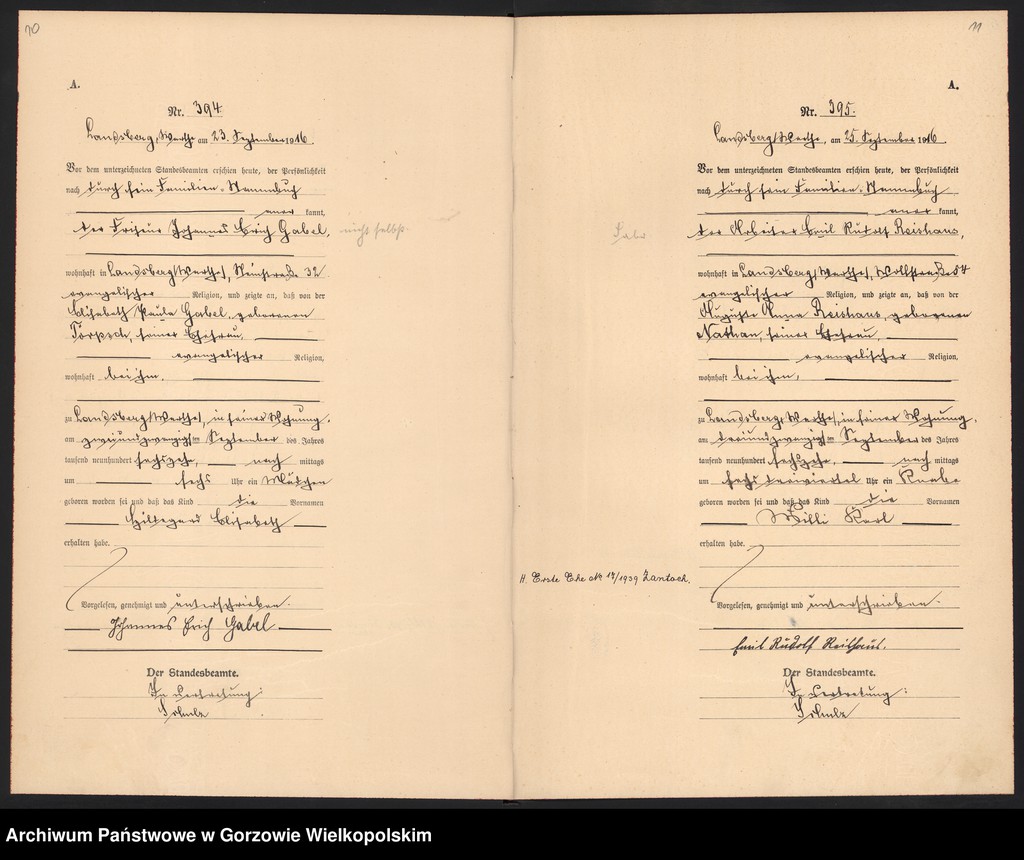 10
A.
Nr. 394.
Landsberg, Warthe am 23. September 1916.
Vor dem unterzeichneten Standesbeamten erschien heute, der Persönlichkeit
nach durch sein Familien-Stammbuch
aner kannt,
der Friseur Johannes Erich Gabel,
wohnhaft in Landsberg (Warthe), Steinstraße 32
evangelischer Religion, und zeigte an, daß von der
Elisabeth Paula Gabel, geborenen
seiner Ehefrau,
evangelischer Religion,
wohnhaft bei ihm,
zu Landsberg (Warthe), in seiner Wohnung,
am zweiundzwanzigsten September des Jahres
tausend neunhundert sechszehn, nach mittags
um sechs Uhr ein Mädchen
geboren worden sei und daß das Kind die Vornamen
Hildegard Elisabeth
erhalten habe.
Vorgelesen, genehmigt und unterschrieben.
Johannes Erich Gabel.
Der Standesbeamte.
In Vertretung:
nicht selbst.
11
A.
Nr. 395.
Landsberg, Warthe, am 25. September 1916.
Vor dem unterzeichneten Standesbeamten erschien heute, der Persönlichkeit
nach durch sein Familien-Stammbuch
aner kannt,
der Arbeiter Emil Rudolf Reishaus,
wohnhaft in Landsberg (Warthe), 54
evangelischer Religion, und zeigte an, daß von der
Auguste Anna Reishaus, geborenen
Nathan, seiner Ehefrau,
evangelischer Religion,
wohnhaft bei ihm,
zu Landsberg, Warthe, in seiner Wohnung,
am dreiundzwanzigsten September des Jahres
tausend neunhundert sechszehn, nach mittags
um sechs dreiviertel Uhr ein Knabe
geboren worden sei und daß das Kind die Vornamen
Willi Karl
erhalten habe.
H. Erste Ehe No 14/1939 Zantoch.
Vorgelesen, genehmigt und unterschrieben.
Emil Rudolf Reishaus.
Der Standesbeamte.
In Vertretung:
Archiwum Państwowe w Gorzowie Wielkopolskim